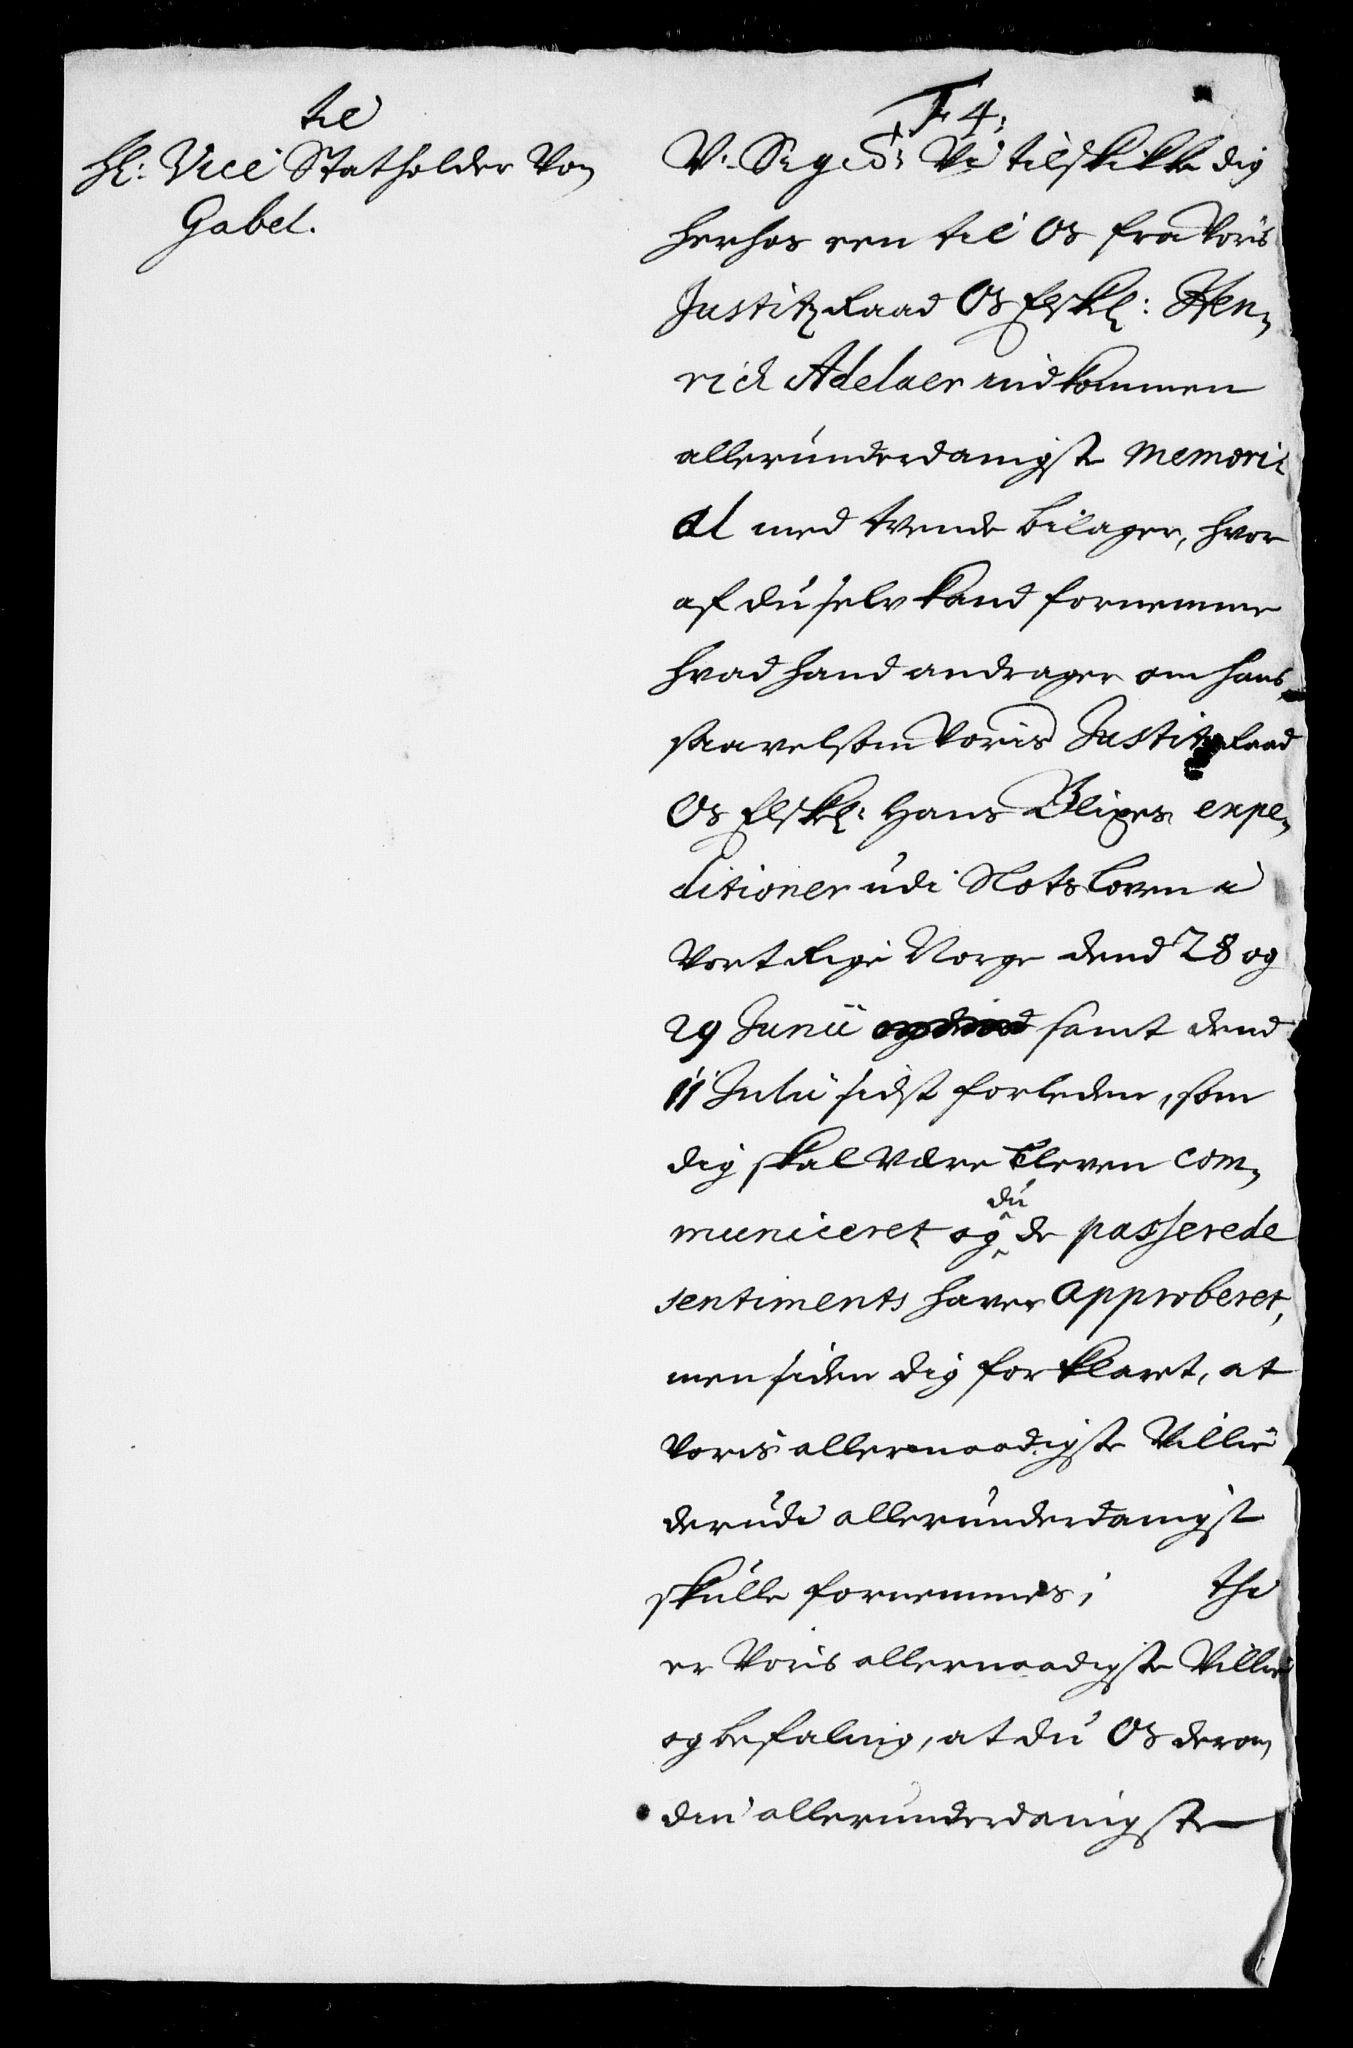 til
Hl: Vice Statholder Von
Gabel.
F 4:
V. S. G. T. Vi tilskikke dig
herhos een til Os fra Voris
Justitz Raad Os Elskl: Hen¬
rich Adelaer indkommen
allerunderdanigste Memori¬
al med tvende bilager, hvor
af du selv kand fornemme
hvad hand andrager om hans
saavelsom Voris Justitz Raad
Os Elskl: Hans Blixes expe¬
ditioner udi Slotsloven i
Vort Rige Norge dend 28 og
29 Junii samt dend
11 Julii sidst forleden, som
dig skal være bleven com¬
municeret og du de passerede
sentiments haver approberet,
men siden dig forklaret, at
Voris allernaadigste Villie
derudi allerunderdanigst
skulle fornemmes; thi
er Voris allernaadigste Villie
og befaling, at du Os derom
din allerunderdanigste